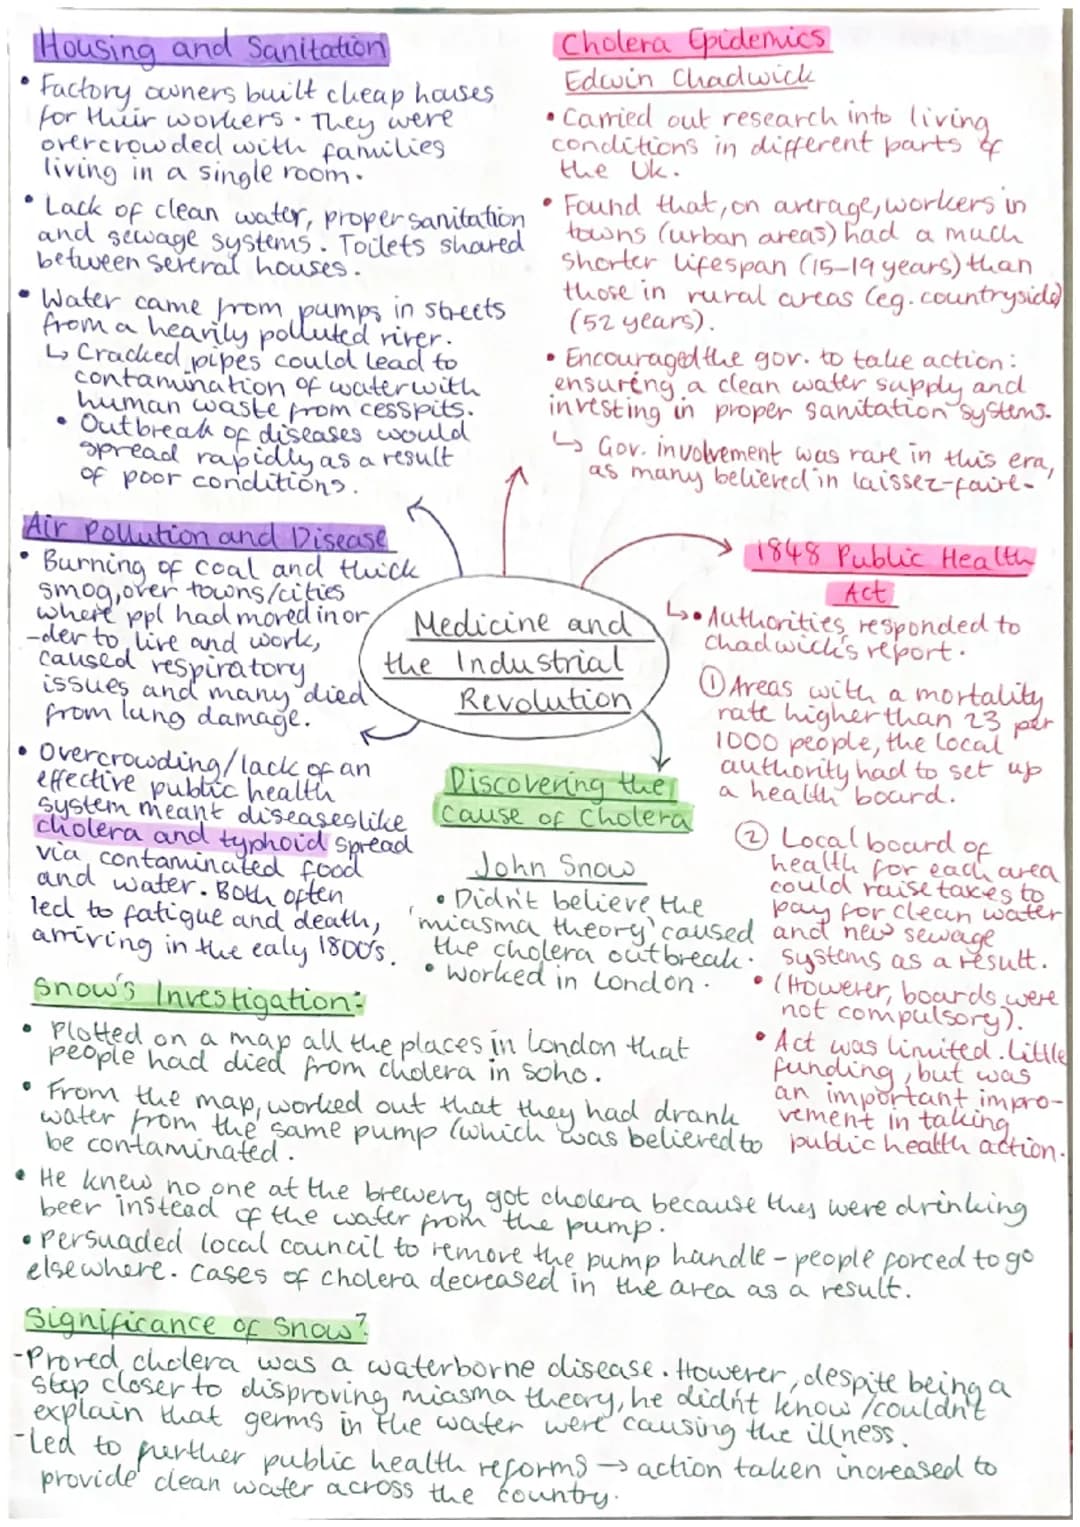 Housing and Sanitation
• Factory owners built cheap houses
for their workers. They were
overcrowded with families
living in a single room.
• Lack of clean water, proper sanitation
and sewage systems. Toilets shared
between several houses.
• Water came from pumps in streets
from a heavily polluted river.
↳ Cracked pipes could lead to
contamination of water with
human waste from cesspits.
• Outbreak of diseases would
spread rapidly as a result
of poor conditions.
Cholera Epidemics
Edwin Chadwick
• Carried out research into living
conditions in different parts of
the Uk.
• Found that, on average, workers in
towns (urban areas) had a much
shorter lifespan (15-19 years) than
those in rural areas (eg. countryside)
(52 years).
• Encouraged the gov. to take action:
ensuring a clean water supply and
investing in proper sanitation systems.
↳ Gov. involvement was rare in this era,
as many believed in laissez-faire.
Air Pollution and Disease
• Burning of coal and thick
smog, over towns/cities
where ppl had moved in or
-der to live and work,
caused respiratory
issues and many died
from lung damage.
• Overcrowding/lack of an
effective public health
system meant diseases like
cholera and typhoid spread
via contaminated food
and water. Both often
led to fatigue and death,
arriving in the ealy 1800's.
Medicine and
the Industrial
Revolution
1848 Public Health
Act
↳• Authorities responded to
Chadwick's report.
① Areas with a mortality
rate higher than 23 per
1000 people, the local
authority had to set up
a health board.
② Local board of
health for each area
could raise taxes to
pay for clean water
and new sewage
systems as a result.
• (However, boards were
not compulsory).
• Act was limited. Little
funding, but was
an important impro-
vement in taking
public health action.
Discovering the
Cause of Cholera
John Snow
• Didn't believe the
'miasma theory' caused
the cholera outbreak.
• Worked in London.
Snow's Investigation:
• Plotted on a map all the places in London that
people had died from cholera in Soho.
• From the map, worked out that they had drank
water from the same pump (which was believed to
be contaminated.
• He knew no one at the brewery got cholera because they were drinking
beer instead of the water from the pump.
• Persuaded local council to remove the pump handle - people forced to go
elsewhere. Cases of cholera decreased in the area as a result.
Significance of Snow?
-Proved cholera was a waterborne disease. However, despite being a
step closer to disproving miasma theory, he didn't know/couldn't
explain that germs in the water were causing the illness.
-Led to further public health reforms → action taken increased to
provide clean water across the country.